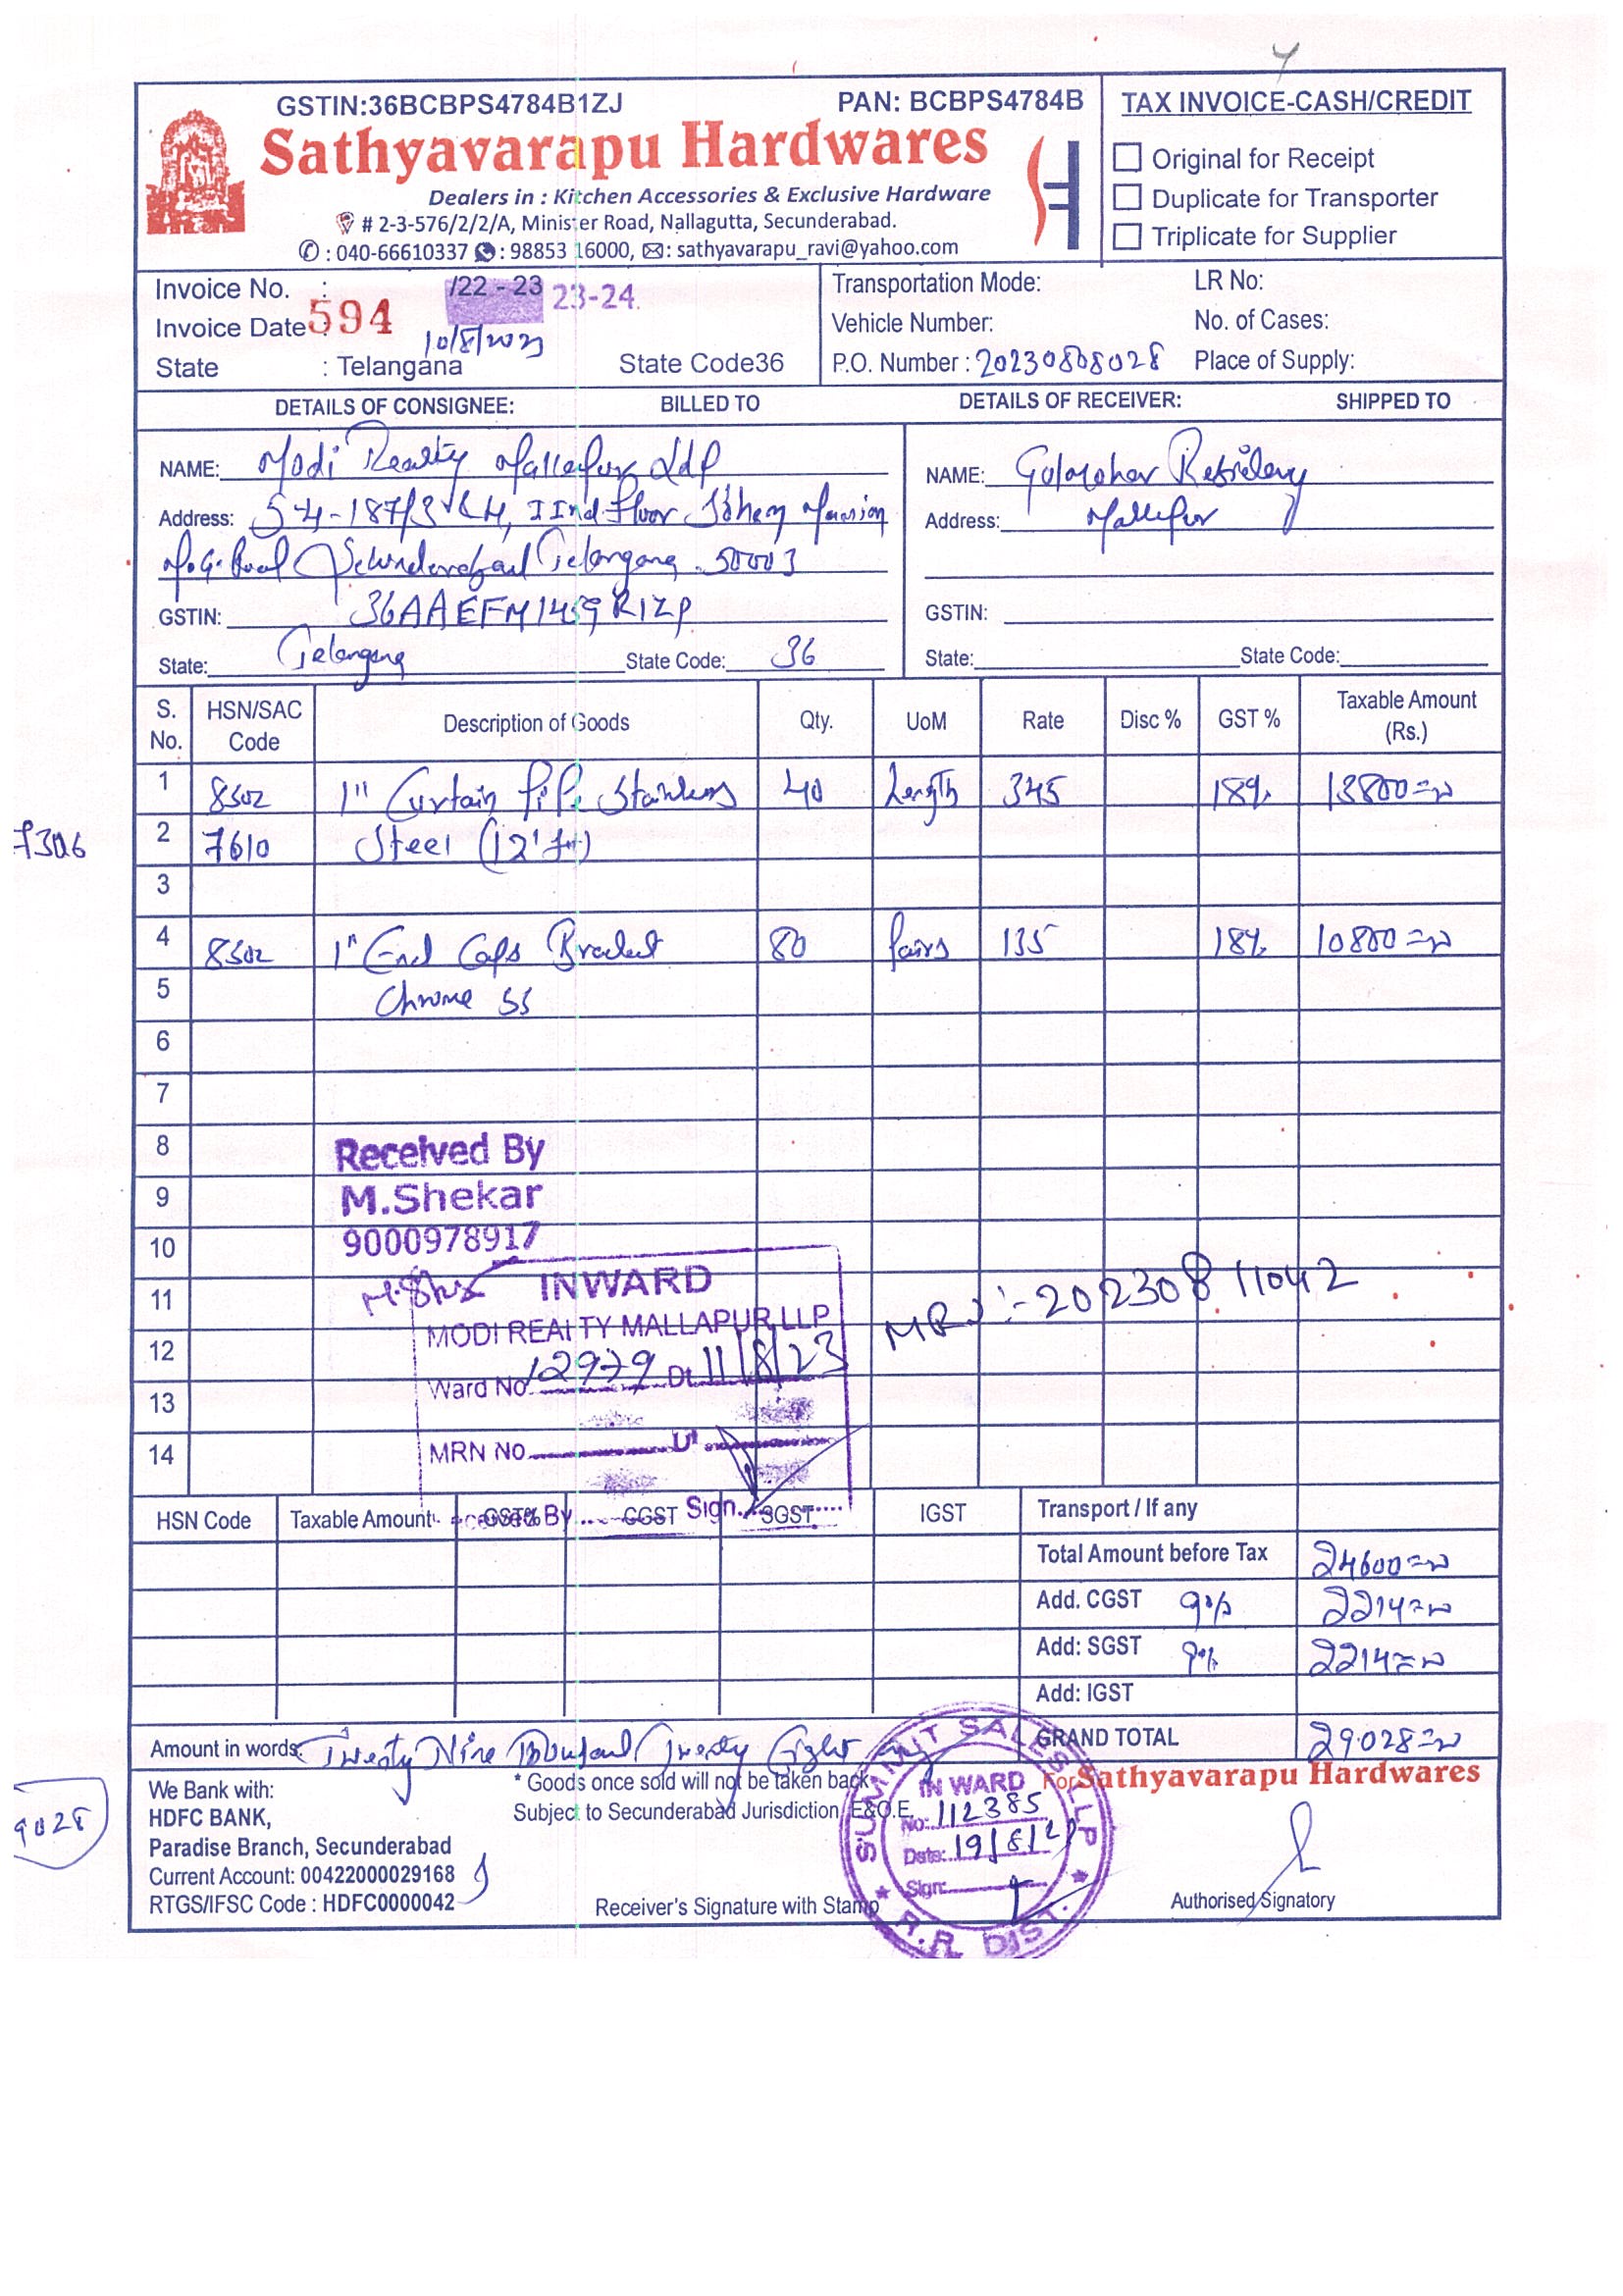 GSTIN:36BCBPS4784B1ZJ PAN: BCBPS4784B TAX INVOICE-CASH/CREDIT
Sathyavarapu Hardwares
Dealers in : Kitchen Accessories & Exclusive Hardware
# 2-3-576/2/2/A, Minister Road, Nallagutta, Secunderabad.
: 040-66610337 : 98853 16000, : sathyavarapu_ravi@yahoo.com
Original for Receipt
Duplicate for Transporter
Triplicate for Supplier
Invoice No. : 594 /22 - 23 23-24
Invoice Date : 10/8/2023
State : Telangana State Code36
Transportation Mode: LR No:
Vehicle Number: No. of Cases:
P.O. Number : 20230808028 Place of Supply:
DETAILS OF CONSIGNEE: BILLED TO DETAILS OF RECEIVER: SHIPPED TO
NAME: Modi Realty Mallapur LLP
Address: 5-4-187/3&4, IInd Floor Soham Mansion
M.G. Road Secunderabad Telangana 50003
GSTIN: 36AAEFM1459R1ZP
State: Telangana State Code: 36
NAME: Gulmohar Residency
Address: Mallapur
GSTIN:
State: State Code:
S. No. HSN/SAC Code Description of Goods Qty. UoM Rate Disc % GST % Taxable Amount (Rs.)
1 8302 1" Curtain Pipe Stainless 40 Length 345 18% 13800=00
7306 2 7610 Steel (12'ft)
3
4 8302 1" End Caps Bracket 80 Pairs 135 18% 10800=00
5 Chrome SS
6
7
8
9
10
11
12
13
14
Received By
M.Shekar
9000978917
INWARD
MODI REALTY MALLAPUR LLP
Ward No. 12979 Dt. 11/8/23
MRN No.
Sign.
MRN:-20230811042
HSN Code Taxable Amount GST% CGST SGST IGST
Transport / If any
Total Amount before Tax 24600=00
Add. CGST 9% 2214=00
Add: SGST 9% 2214=00
Add: IGST
GRAND TOTAL 29028=00
Amount in words: Twenty Nine Thousand Twenty Eight
We Bank with:
HDFC BANK,
Paradise Branch, Secunderabad
Current Account: 00422000029168
RTGS/IFSC Code : HDFC0000042
9028
* Goods once sold will not be taken back
Subject to Secunderabad Jurisdiction, E&O.E.
Receiver's Signature with Stamp
SUMMIT SALES LLP
IN WARD
No: 112385
Date: 19/8/2
Sign:
R.R DIST.
For Sathyavarapu Hardwares
Authorised Signatory